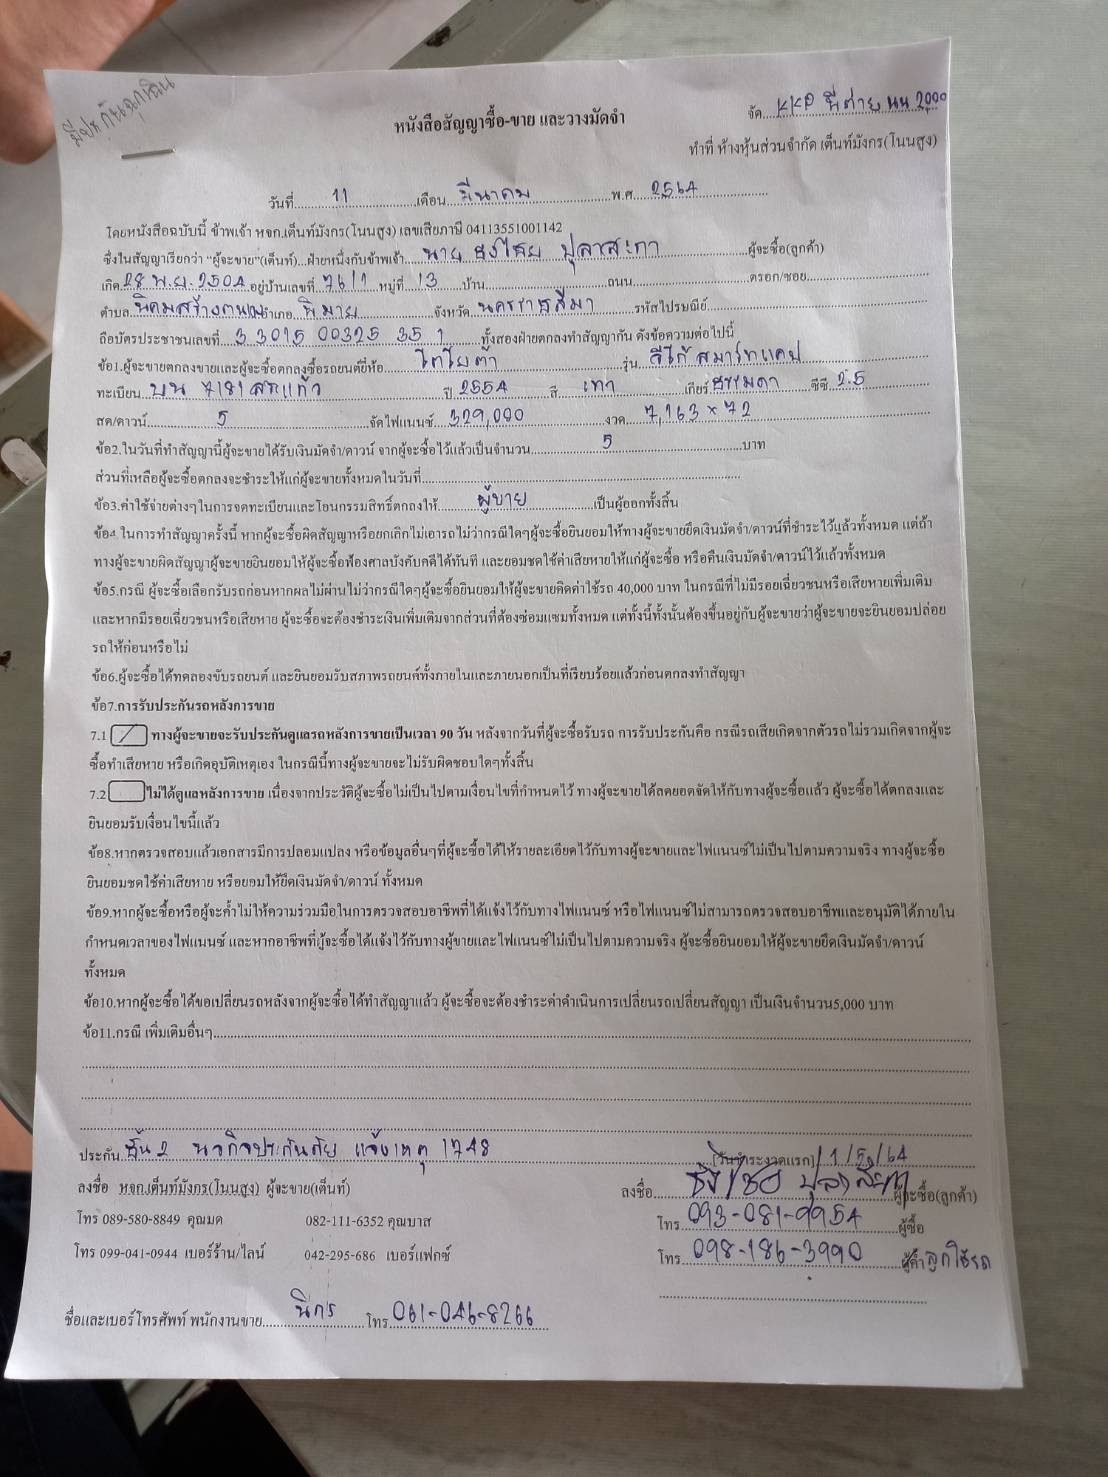 มีประกันฉุกเฉิน
จัด KKP มีค่ายนน 2000
หนังสือสัญญาซื้อ-ขาย และวางมัดจำ
ทำที่ ห้างหุ้นส่วนจำกัด เต็นท์มังกร(โนนสูง)
วันที่ 11 เดือน มีนาคม พ.ศ. 2564
โดยหนังสือฉบับนี้ ข้าพเจ้า หจก.เต็นท์มังกร(โนนสูง) เลขเสียภาษี 04113551001142
ซึ่งในสัญญาเรียกว่า "ผู้จะขาย"(เต็นท์)...ฝ่ายหนึ่งกับข้าพเจ้า นาย ธงไชย ปุลาสะกา ผู้จะซื้อ(ลูกค้า)
เกิด 28 พ.ย. 2504 อยู่บ้านเลขที่ 76/1 หมู่ที่ 13 บ้าน ถนน ตรอก/ซอย
ตำบล นิคมสร้างตนเอง อำเภอ พิมาย จังหวัด นครราชสีมา รหัสไปรษณีย์
ถือบัตรประชาชนเลขที่ 3 3015 00325 35 1 ทั้งสองฝ่ายตกลงทำสัญญากัน ดังข้อความต่อไปนี้
ข้อ1.ผู้จะขายตกลงขายและผู้จะซื้อตกลงซื้อรถยนต์ยี่ห้อ โตโยต้า รุ่น วีโก้ สมาร์ทแคป
ทะเบียน บน 7181 สระแก้ว ปี 2554 สี เทา เกียร์ ธรรมดา ซีซี 2.5
สด/ดาวน์ 5 จัดไฟแนนซ์ 329,000 งวด 7,163 x 72
ข้อ2.ในวันที่ทำสัญญานี้ผู้จะขายได้รับเงินมัดจำ/ดาวน์ จากผู้จะซื้อไว้แล้วเป็นจำนวน 5 บาท
ส่วนที่เหลือผู้จะซื้อตกลงจะชำระให้แก่ผู้จะขายทั้งหมดในวันที่
ข้อ3.ค่าใช้จ่ายต่างๆในการจดทะเบียนและโอนกรรมสิทธิ์ตกลงให้ ผู้ขาย เป็นผู้ออกทั้งสิ้น
ข้อ4 ในการทำสัญญาครั้งนี้ หากผู้จะซื้อผิดสัญญาหรือยกเลิกไม่เอารถไม่ว่ากรณีใดๆผู้จะซื้อยินยอมให้ทางผู้จะขายยึดเงินมัดจำ/ดาวน์ที่ชำระไว้แล้วทั้งหมด แต่ถ้า
ทางผู้จะขายผิดสัญญาผู้จะขายยินยอมให้ผู้จะซื้อฟ้องศาลบังคับคดีได้ทันที และยอมชดใช้ค่าเสียหายให้แก่ผู้จะซื้อ หรือคืนเงินมัดจำ/ดาวน์ไว้แล้วทั้งหมด
ข้อ5.กรณี ผู้จะซื้อเลือกรับรถก่อนหากผลไม่ผ่านไม่ว่ากรณีใดๆผู้จะซื้อยินยอมให้ผู้จะขายคิดค่าใช้รถ 40,000 บาท ในกรณีที่ไม่มีรอยเฉี่ยวชนหรือเสียหายเพิ่มเติม
และหากมีรอยเฉี่ยวชนหรือเสียหาย ผู้จะซื้อจะต้องชำระเงินเพิ่มเติมจากส่วนที่ต้องซ่อมแซมทั้งหมด แต่ทั้งนี้ทั้งนั้นต้องขึ้นอยู่กับผู้จะขายว่าผู้จะขายจะยินยอมปล่อย
รถให้ก่อนหรือไม่
ข้อ6.ผู้จะซื้อได้ทดลองขับรถยนต์ และยินยอมรับสภาพรถยนต์ทั้งภายในและภายนอกเป็นที่เรียบร้อยแล้วก่อนตกลงทำสัญญา
ข้อ7.การรับประกันรถหลังการขาย
7.1 / ทางผู้จะขายจะรับประกันดูแลรถหลังการขายเป็นเวลา 90 วัน หลังจากวันที่ผู้จะซื้อรับรถ การรับประกันคือ กรณีรถเสียเกิดจากตัวรถไม่รวมเกิดจากผู้จะ
ซื้อทำเสียหาย หรือเกิดอุบัติเหตุเอง ในกรณีนี้ทางผู้จะขายจะไม่รับผิดชอบใดๆทั้งสิ้น
7.2 ไม่ได้ดูแลหลังการขาย เนื่องจากประวัติผู้จะซื้อไม่เป็นไปตามเงื่อนไขที่กำหนดไว้ ทางผู้จะขายได้ลดยอดจัดให้กับทางผู้จะซื้อแล้ว ผู้จะซื้อได้ตกลงและ
ยินยอมรับเงื่อนไขนี้แล้ว
ข้อ8.หากตรวจสอบแล้วเอกสารมีการปลอมแปลง หรือข้อมูลอื่นๆที่ผู้จะซื้อได้ให้รายละเอียดไว้กับทางผู้จะขายและไฟแนนซ์ไม่เป็นไปตามความจริง ทางผู้จะซื้อ
ยินยอมชดใช้ค่าเสียหาย หรือยอมให้ยึดเงินมัดจำ/ดาวน์ ทั้งหมด
ข้อ9.หากผู้จะซื้อหรือผู้จะค้ำไม่ให้ความร่วมมือในการตรวจสอบอาชีพที่ได้แจ้งไว้กับทางไฟแนนซ์ หรือไฟแนนซ์ไม่สามารถตรวจสอบอาชีพและอนุมัติได้ภายใน
กำหนดเวลาของไฟแนนซ์ และหากอาชีพที่ผู้จะซื้อได้แจ้งไว้กับทางผู้ขายและไฟแนนซ์ไม่เป็นไปตามความจริง ผู้จะซื้อยินยอมให้ผู้จะขายยึดเงินมัดจำ/ดาวน์
ทั้งหมด
ข้อ10.หากผู้จะซื้อได้ขอเปลี่ยนรถหลังจากผู้จะซื้อได้ทำสัญญาแล้ว ผู้จะซื้อจะต้องชำระค่าดำเนินการเปลี่ยนรถเปลี่ยนสัญญา เป็นเงินจำนวน5,000 บาท
ข้อ11.กรณี เพิ่มเติมอื่นๆ
ประกัน ชั้น 2 นวกิจประกันภัย แจ้งเหตุ 1748 (วันชำระงวดแรก) 1/5/64
ลงชื่อ หจก.เต็นท์มังกร(โนนสูง) ผู้จะขาย(เต็นท์) ลงชื่อ ธงไชย ปุลาสะกา ผู้จะซื้อ(ลูกค้า)
โทร 089-580-8849 คุณมด 082-111-6352 คุณบาส โทร 093-081-9954 ผู้ซื้อ
โทร 099-041-0944 เบอร์ร้าน/ไลน์ 042-295-686 เบอร์แฟกซ์ โทร 098-186-3990 ผู้ค้ำ ลูกใช้รถ
ชื่อและเบอร์โทรศัพท์ พนักงานขาย นิกร โทร 061-046-8266